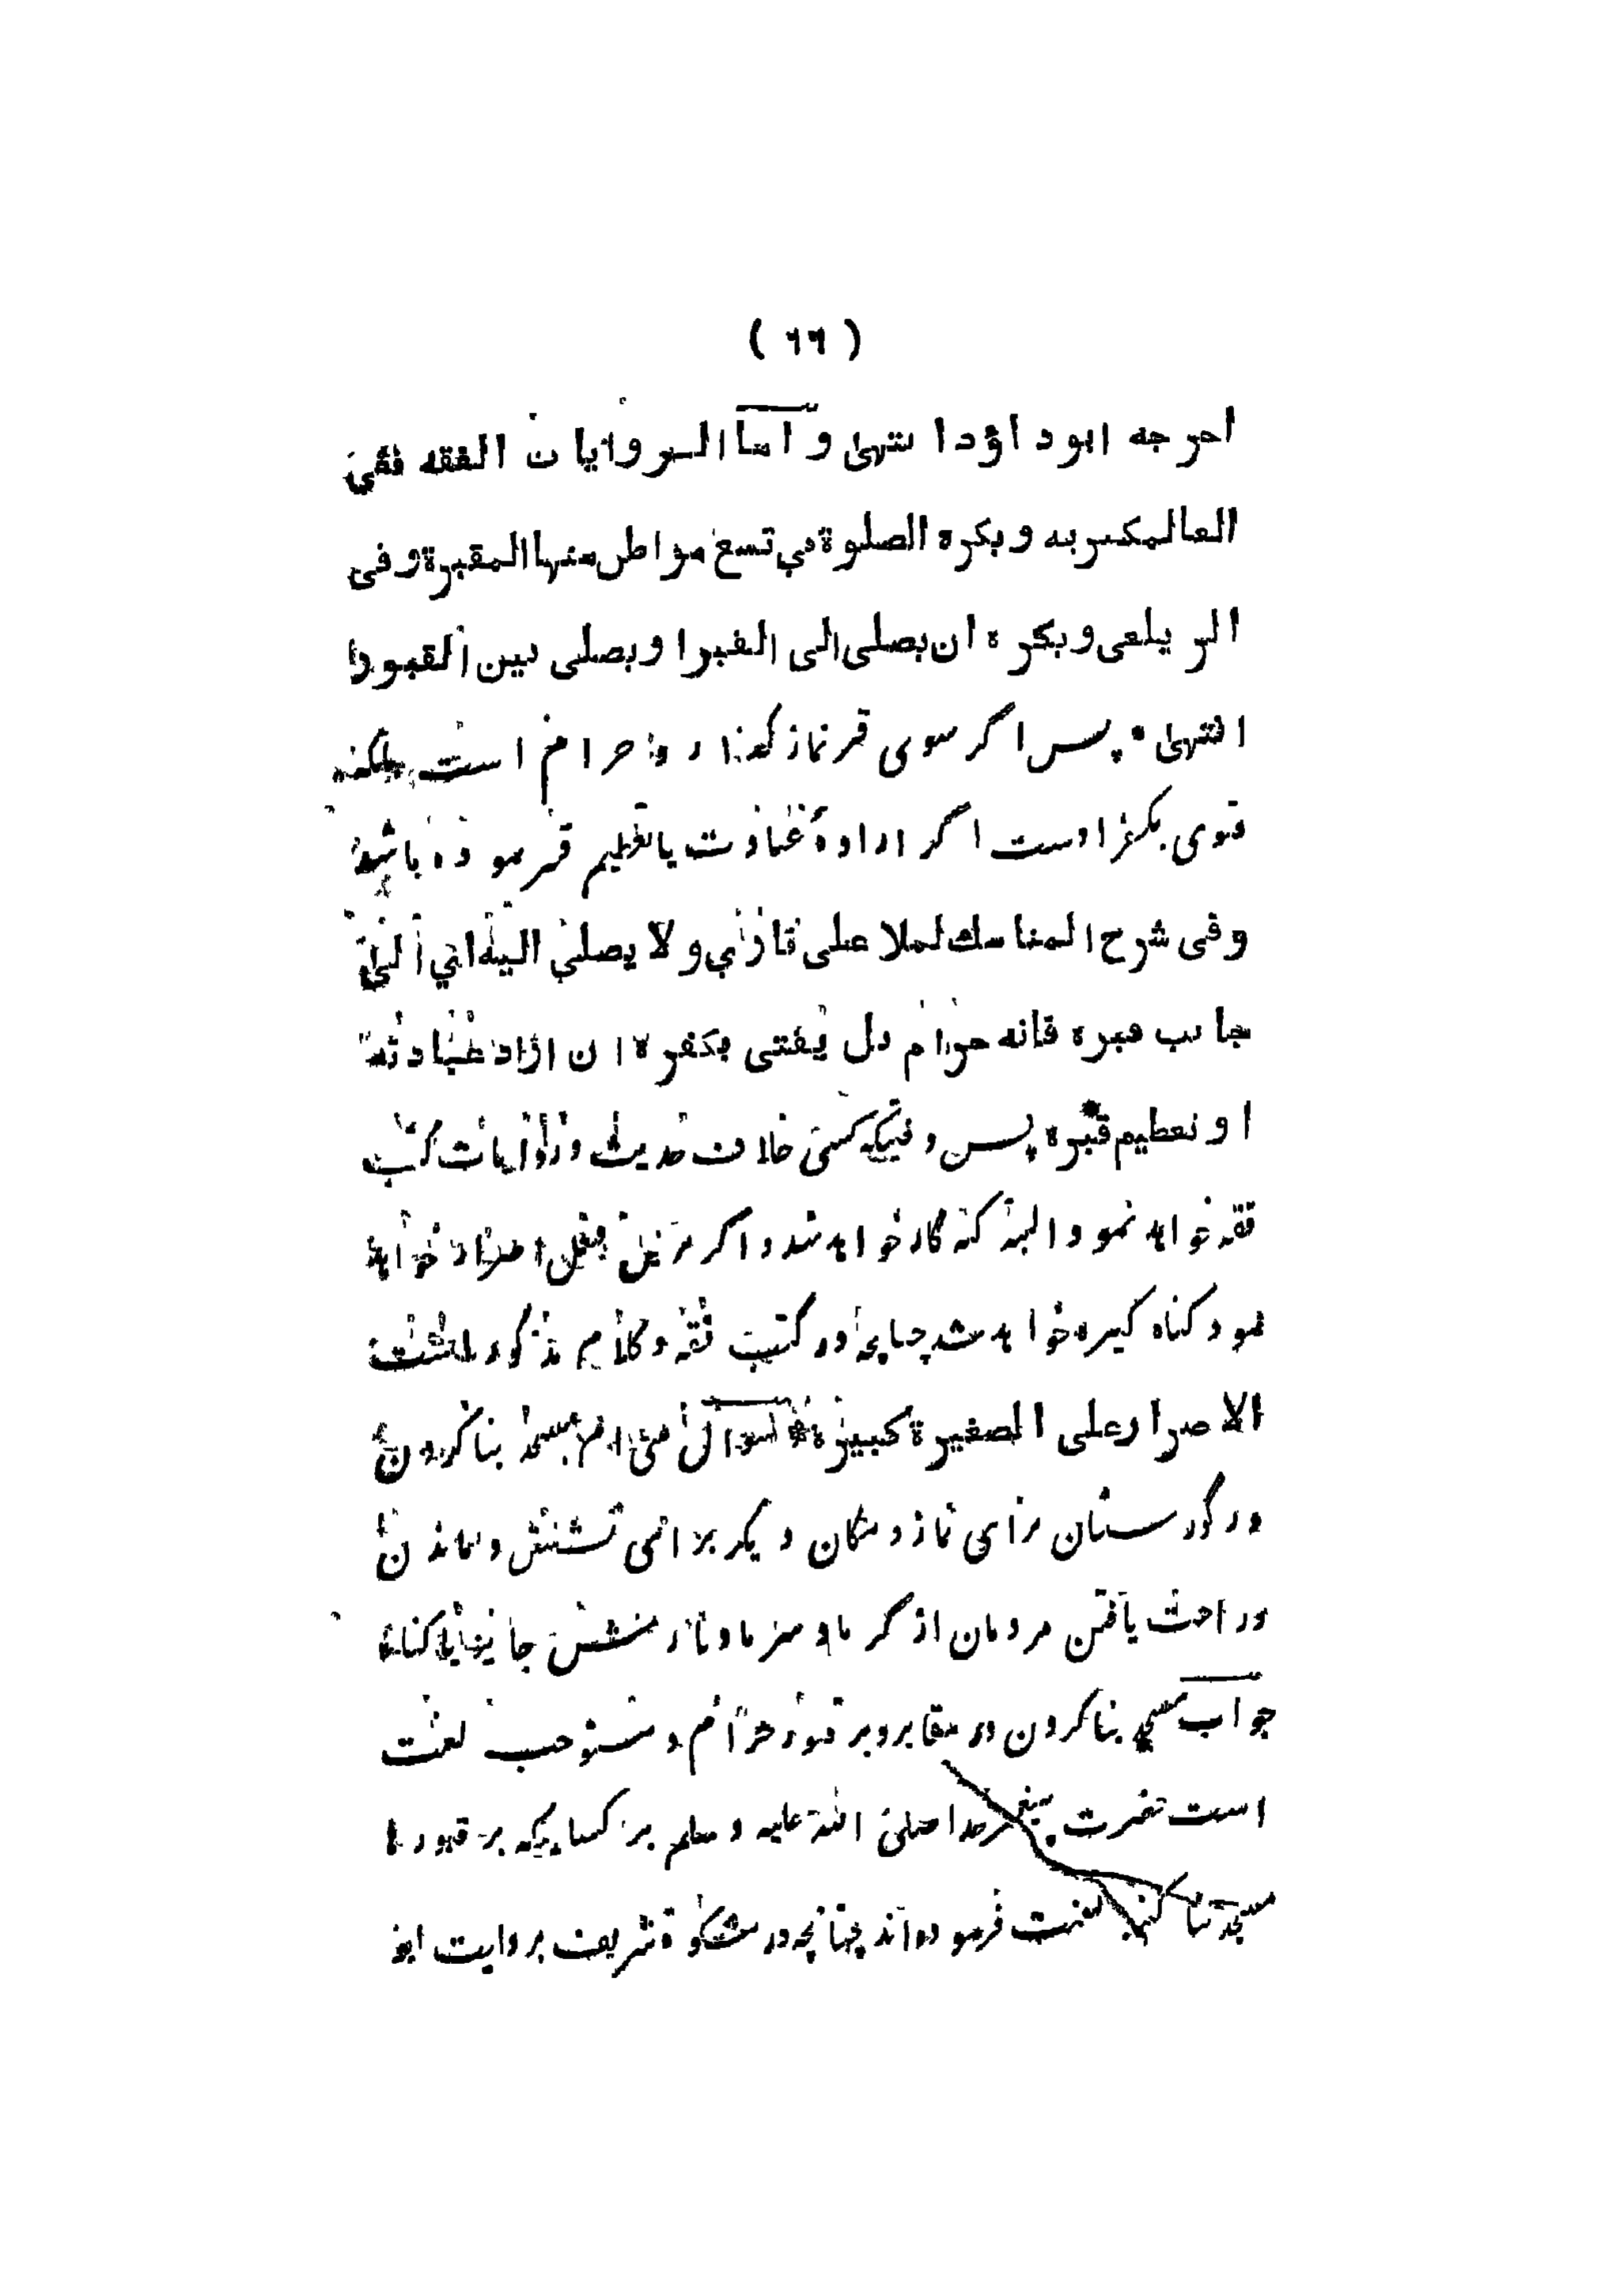 ( ٦٦ )
اخرجه ابوداؤد انتهى واما الروايات الفقه ففي
العالمكيريه ويكره الصلوة في تسع مواطن منها المقبرة وفى
الزيلعى ويكره ان يصلى الى القبر او يصلى بين القبور
انتهى * پس اگر سوى قبر نماز گذارد حرام است بلكه
فتوى بكفر اوست اگر ارادهٔ عبادت يا تعظيم قبر نموده باشد
وفى شرح المناسك لملا على قارى ولا يصلى اليه اى الى
جانب قبره فانه حرام بل يفتى بكفره ان اراد عبادته
او تعظيم قبره پس وقتيكه كسى خلاف حديث وروايات كتب
فقه خواهد نمود البته گنه گار خواهد شد واگر بر اين فعل اصرار خواهد
نمود گناه كبيره خواهد شد چنانچه در كتب فقه وكلام مذكور است
الاصرار على الصغيرة كبيرة * سوال سى ام مسجد بنا كردن
در گورستان براى نماز ومكان ديگر براى نشستن وماندن
وراحت يافتن مردمان از گرما وسرما و منشش جايز يا گناه
جواب مسجد بنا كردن در مقابر وبر قبور حرام ومستوجب لعنت
است حضرت پيغمبر خدا صلى الله عليه وسلم بر كسانيكه بر قبورها
مسجد بنا كنند لعنت فرموده اند چنانچه در مشكوة شريف بروايت ابن